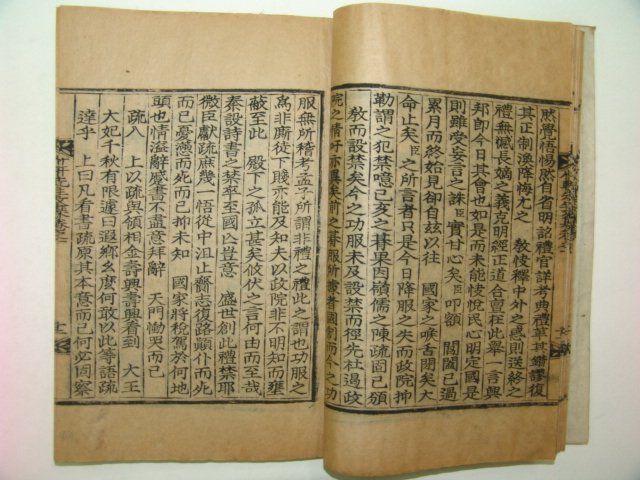 然覺悟惕然自省明詔禮官詳考典禮革其紕謬復
其正制渙降悔尤之　教快釋中外之惑則送終之
禮無憾長嫡之義克明經正道合亶在此擧一言興
邦卽今日其會也如是而未能快悅民心明定國是
則雖受妄言之誅臣實甘心矣臣叩額　閶闔已過
累月而終始見卻自玆以往　國家之喉舌閉矣大
命止矣臣之所言者只是今日降服之失而政院抑
勒謂之犯禁噫己亥之朞果因嶺儒之陳疏面已頒
敎而設禁矣今之功服未及設禁而徑先杜遏政
院之情吁亦異矣前之朞服所
服無所稽考孟子所謂非禮之禮此之謂也功服之
高非廝徒下賤亦能及知夫以政院非不明知而壅
蔽至此　殿下之孤立甚矣攸伏之言何由而至哉
秦設詩書之禁卒至國亡豈意　盛世創此禮禁耶
微臣獻疏庶幾一悟從中沮止齎志復路顚仆而死
而已憂懣而死而已抑未知　國家將稅駕於何地
頭也情溢辭蹙書不盡意拜辭　天門慟哭而已
疏入　上以疏與領相金壽興壽興看到　大王
大妃千秋有限遽日遐鄕幺麼何敢以此等語疏
達乎　上曰凡看書疏原其本意而已何必固察